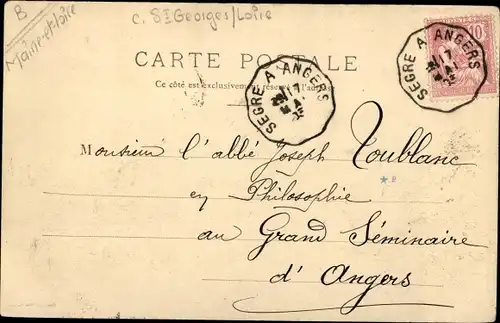 B
Maine-et-Loire
c. St Georges/Loire
CARTE POSTALE
Ce côté est exclusivement réservé à l'adresse
SEGRE A ANGERS
17
MAI
SEGRE A ANGERS
17
MAI
10
Monsieur l'abbé Joseph Toublanc
en Philosophie
au Grand Séminaire
d'Angers